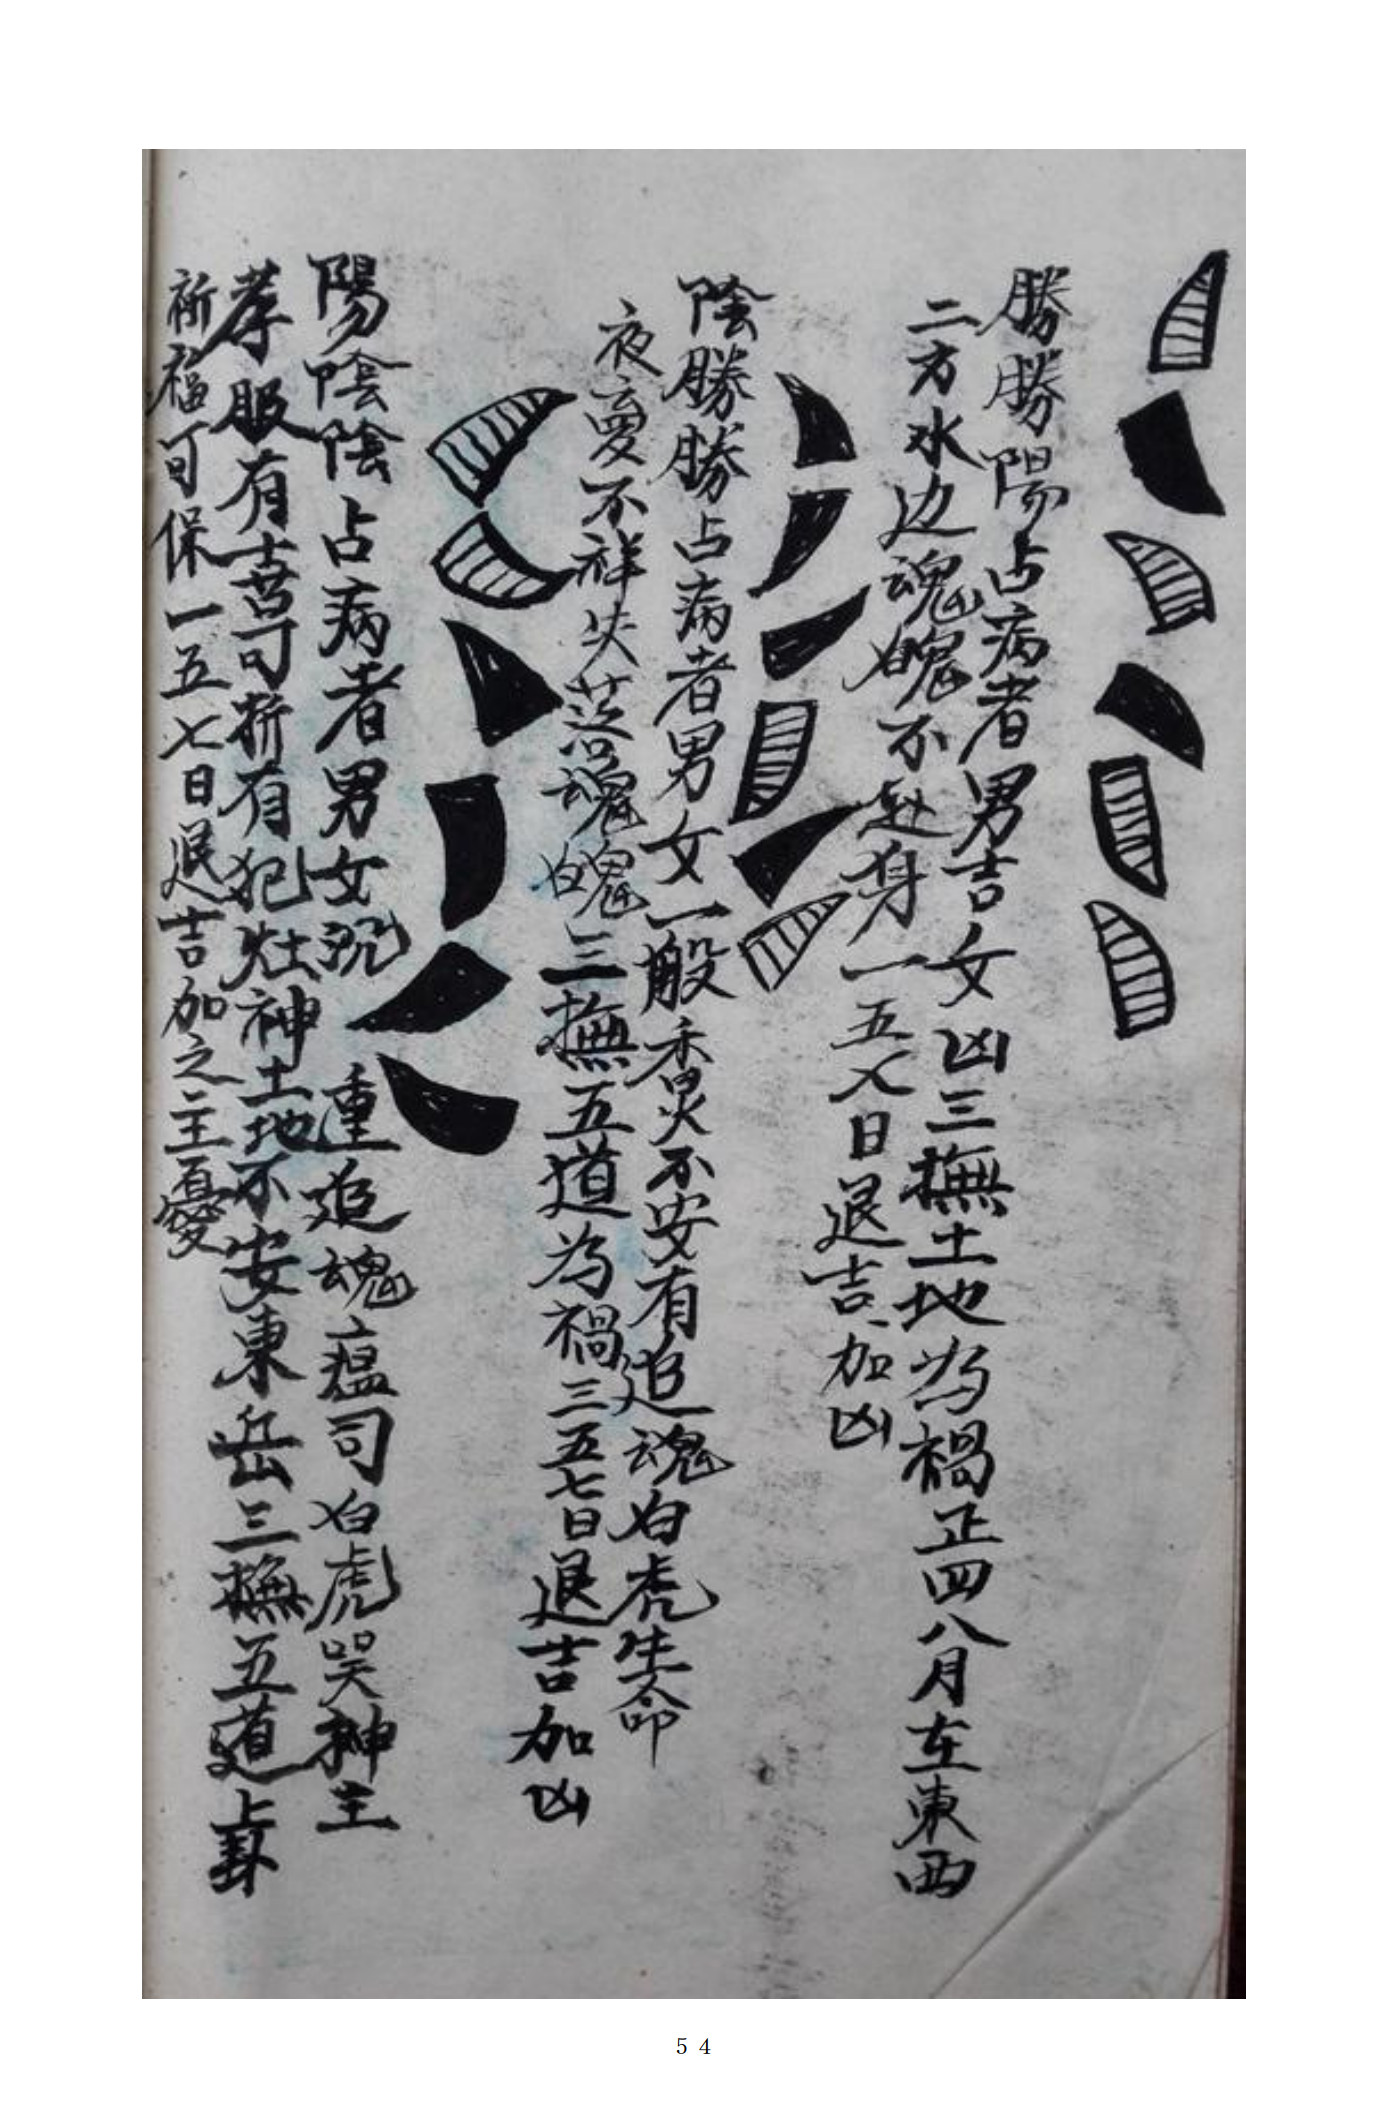 勝勝陽占病者男吉女凶三撫土地为禍正四八月在東西
二方水边魂魄不赴身一五七日退吉加凶
陰勝勝占病者男女一般香火不安有追魂白虎生命
夜夢不祥失落魂魄三撫五道为禍三五七日退吉加凶
陽陰陰占病者男女沉重追魂瘟司白虎哭神主
孝服有喜可祈有犯灶神土地不安東岳三撫五道上卦
祈福可保一五七日退吉加之主憂
54